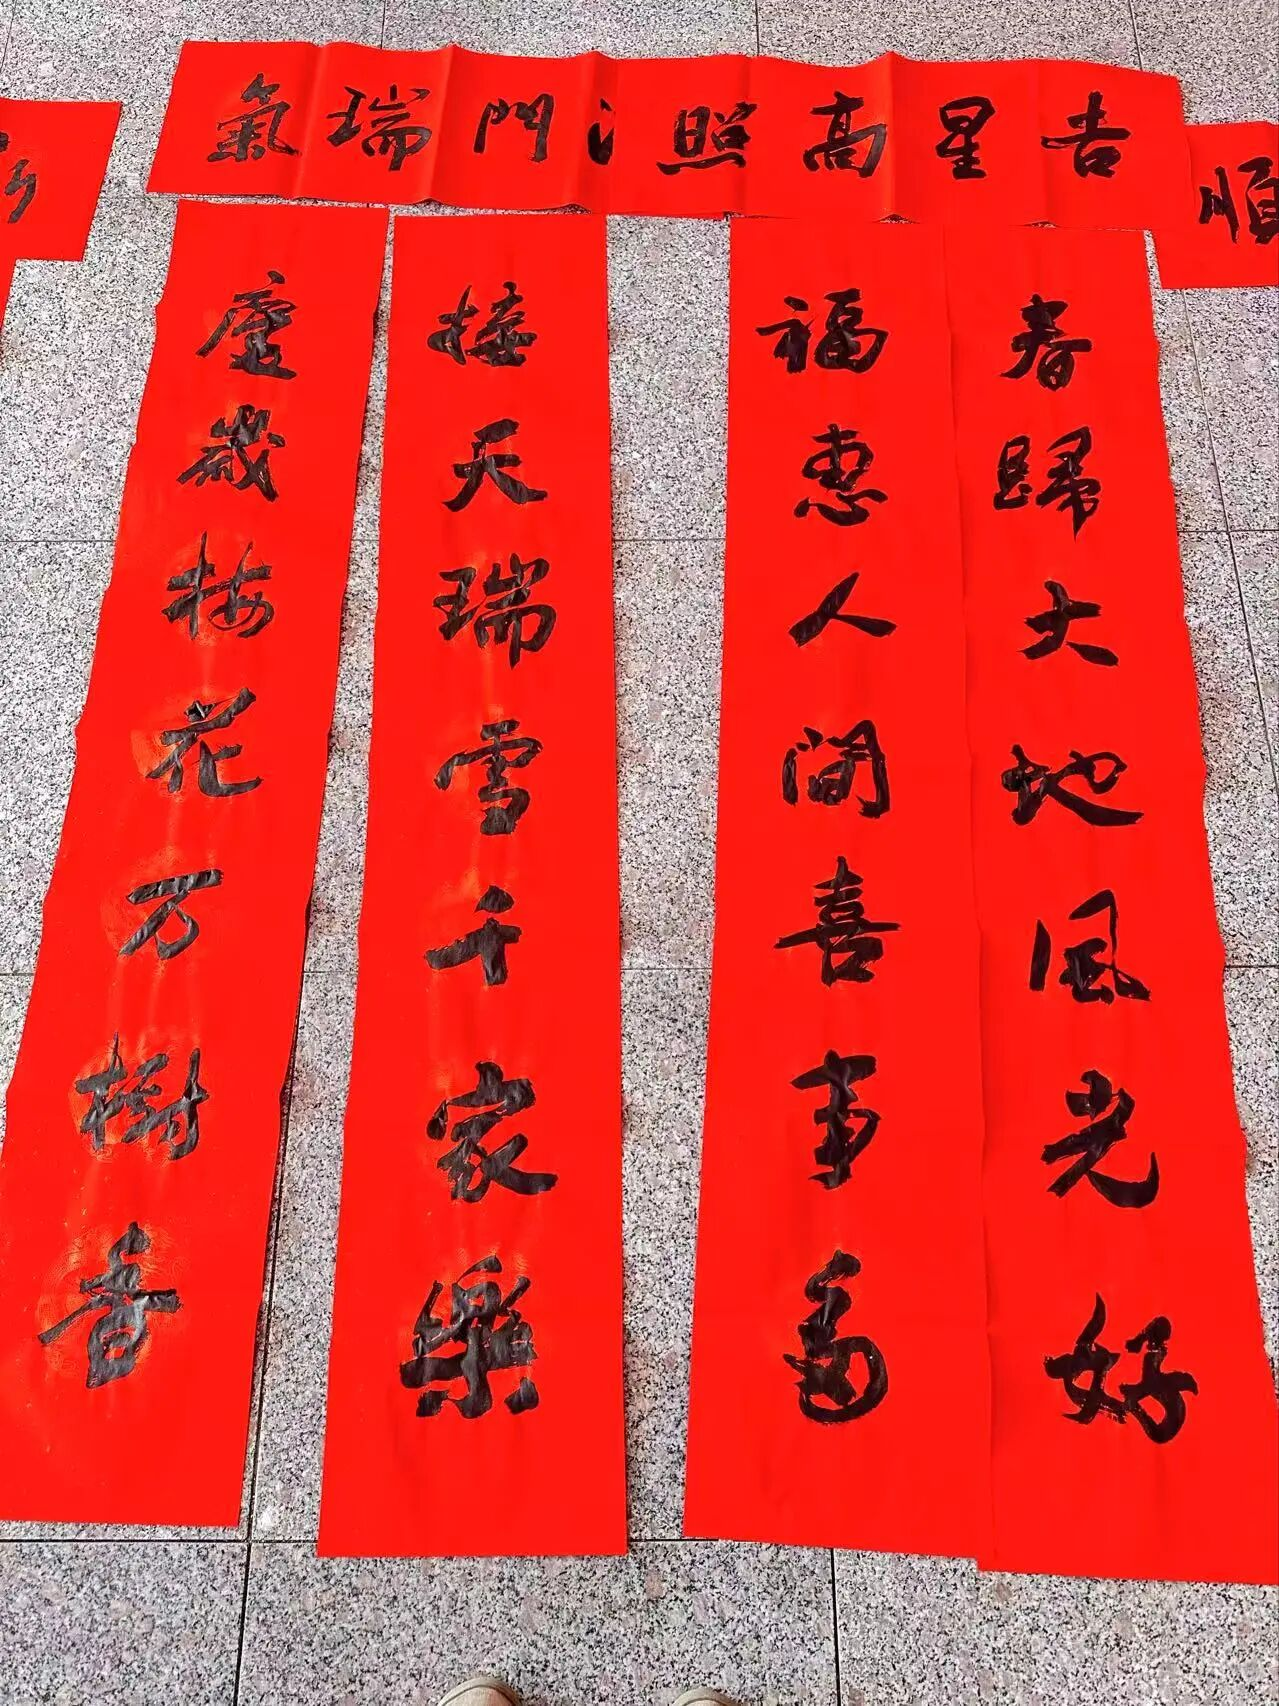 吉星高照
門瑞氣
順
春歸大地風光好
福惠人间喜事多
接天瑞雪千家樂
慶歲梅花万樹香